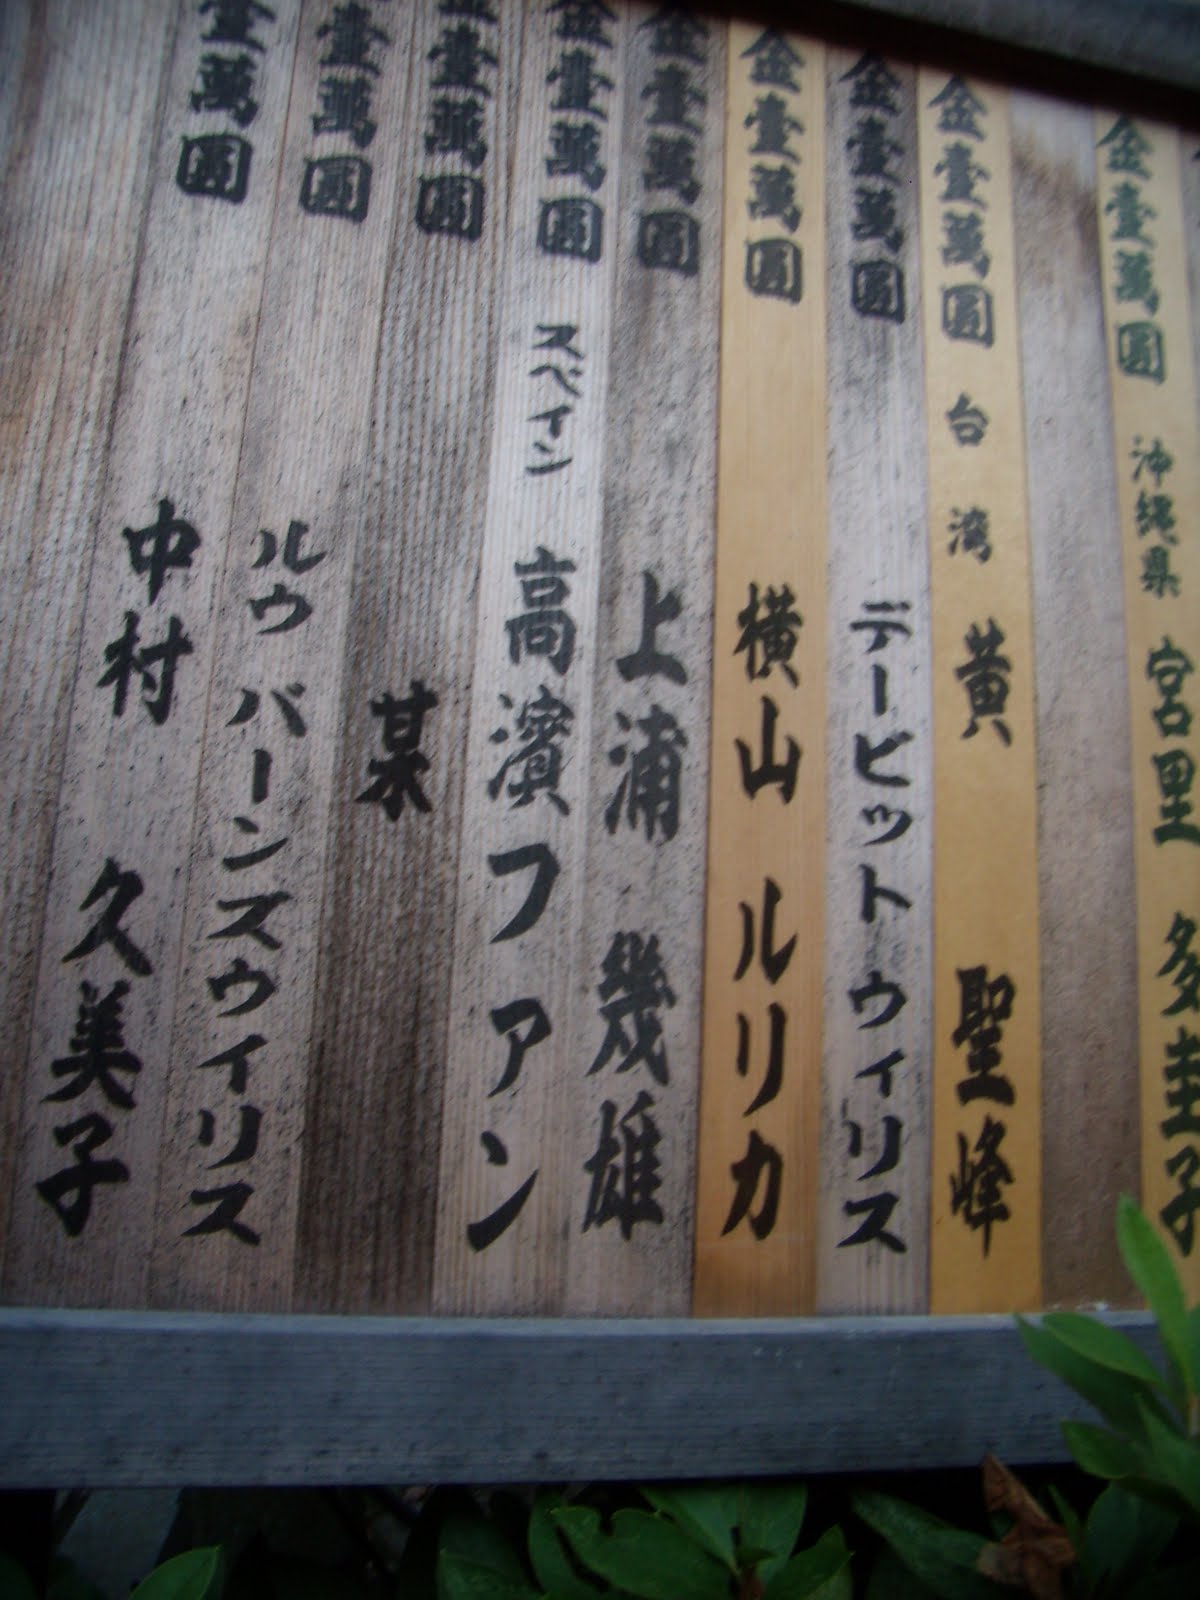 金壹萬圓 沖縄県 宮里 多圭子
金壹萬圓 台湾 黄 聖峰
金壹萬圓 デービットウィリス
金壹萬圓 横山 ルリカ
金壹萬圓 上浦 幾雄
金壹萬圓 スペイン 高濱フアン
壹萬圓 某
壹萬圓 ルウ バーンズウィリス
壹萬圓 中村 久美子